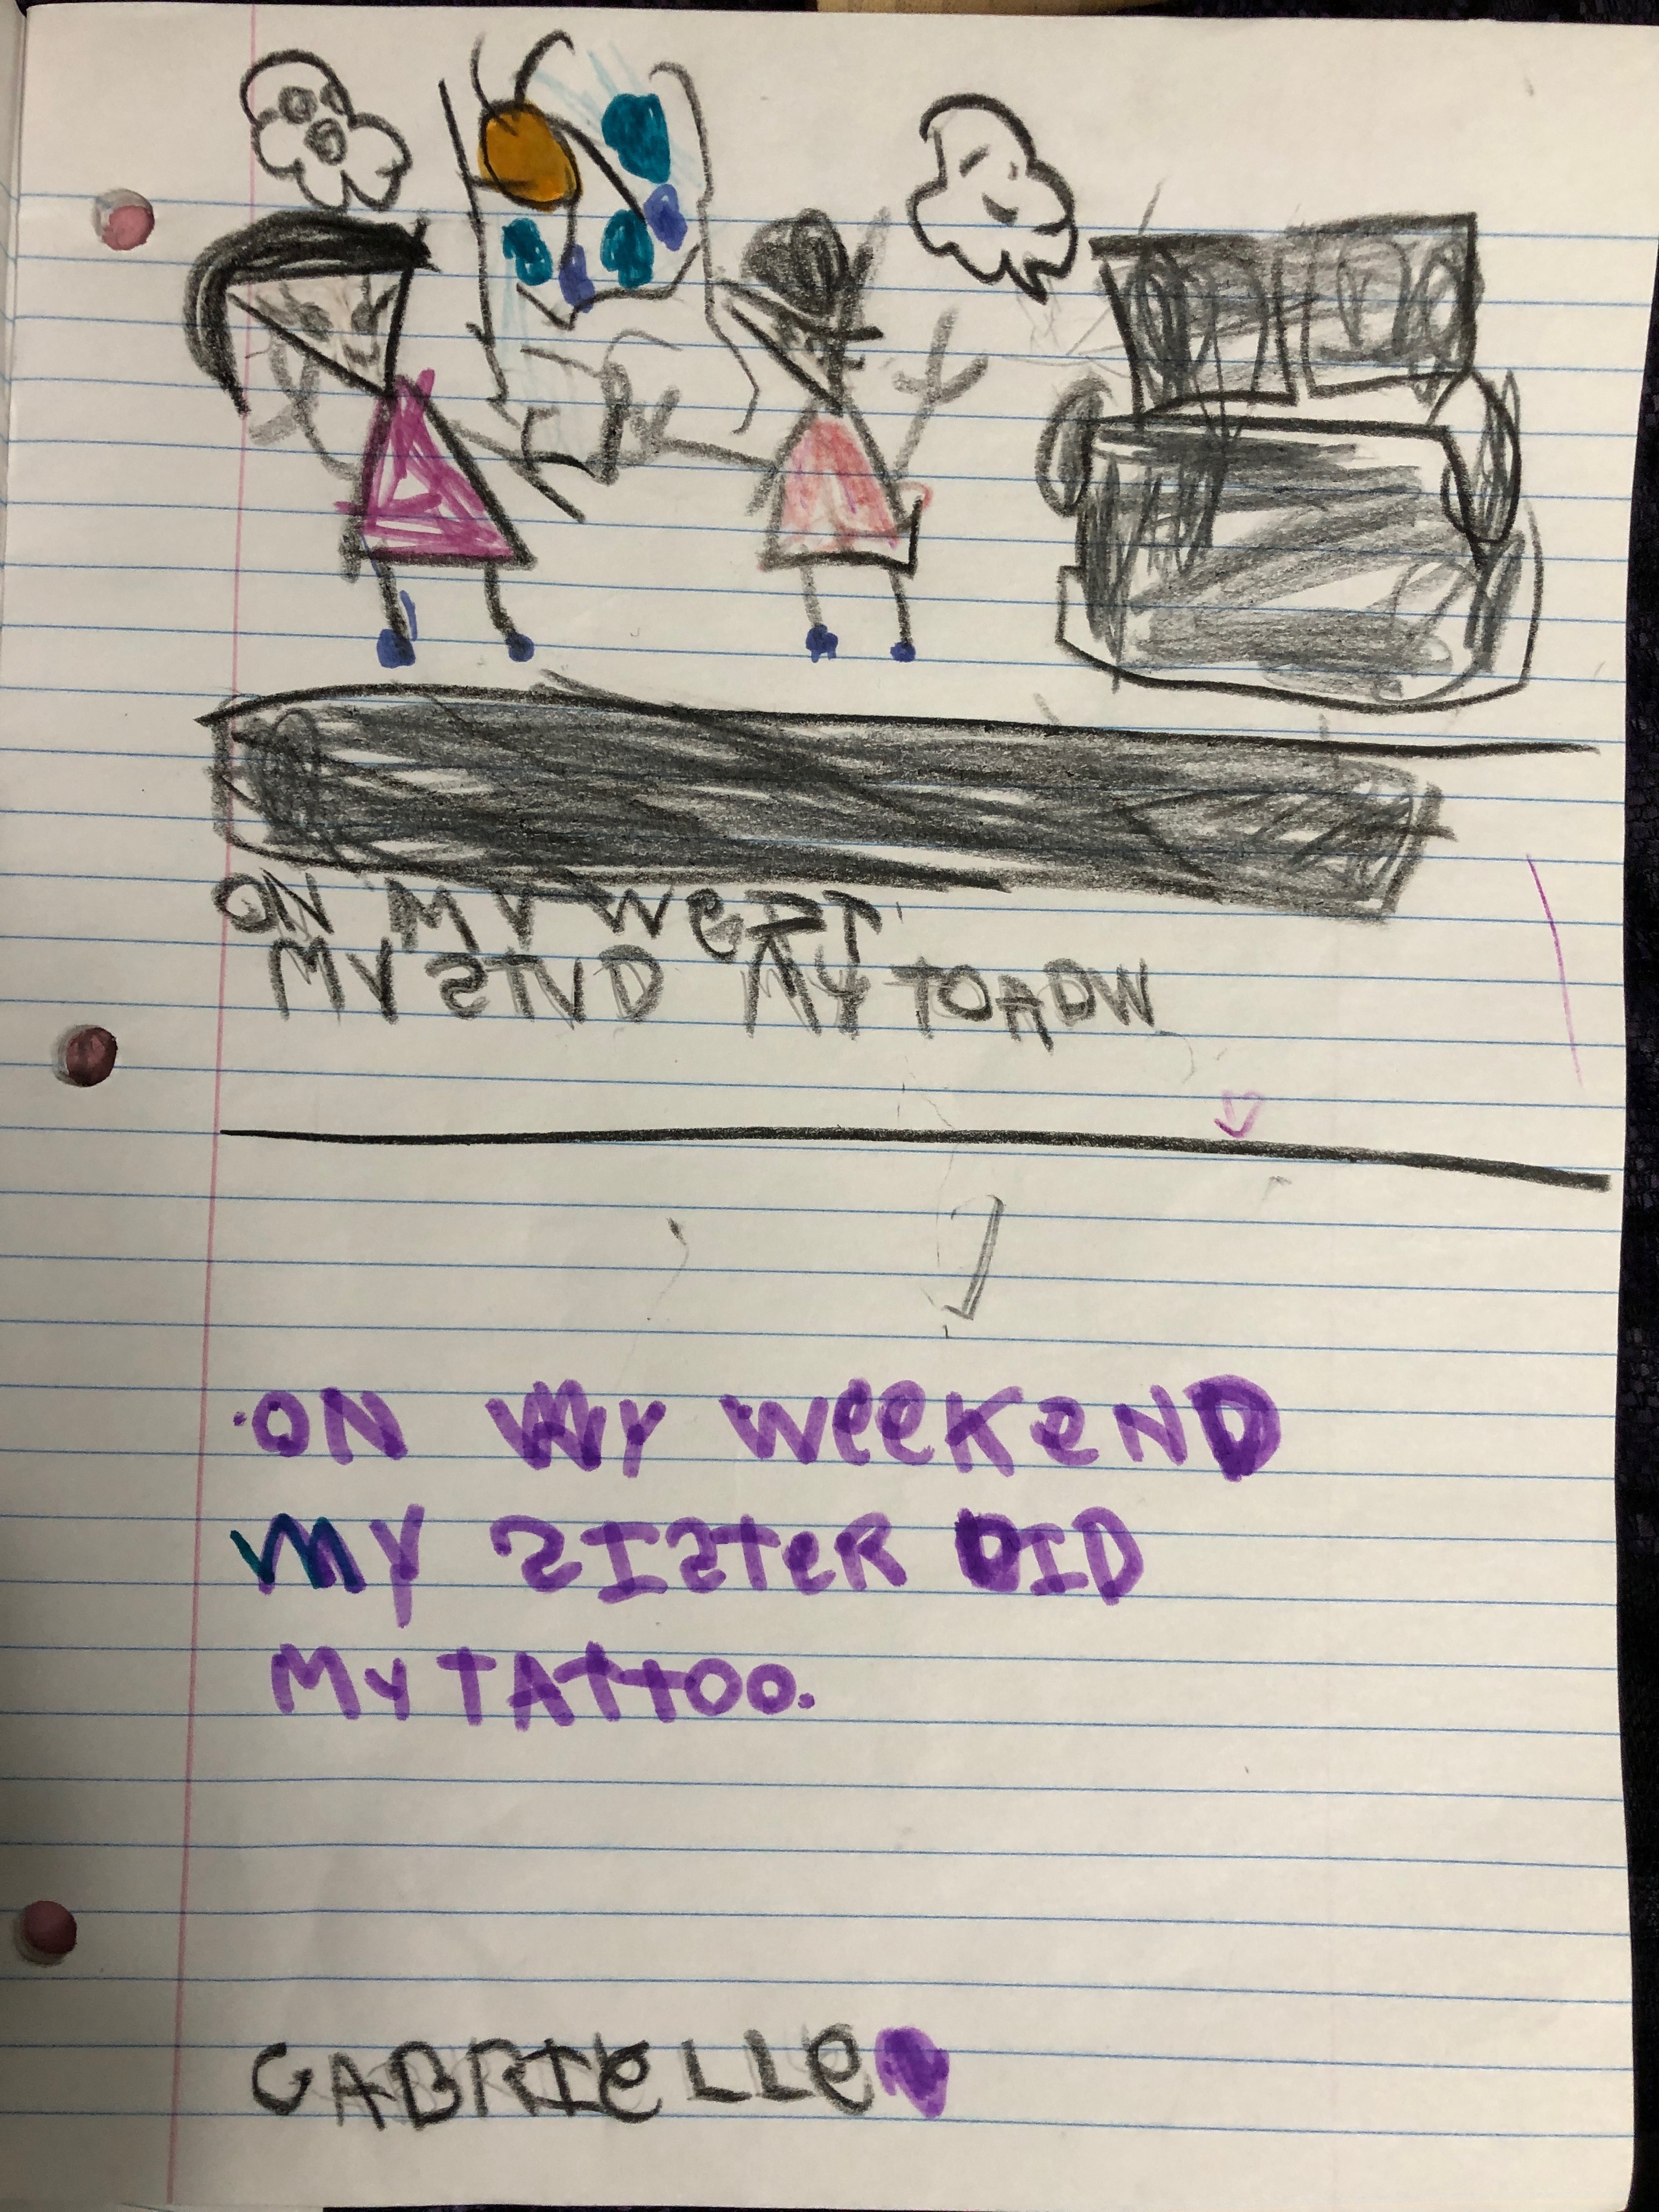 ON MY WERT
MY STVD MY TOADW
ON MY WeeKeND
MY SISteR DID
My TAttOO.
GABRIeLLe